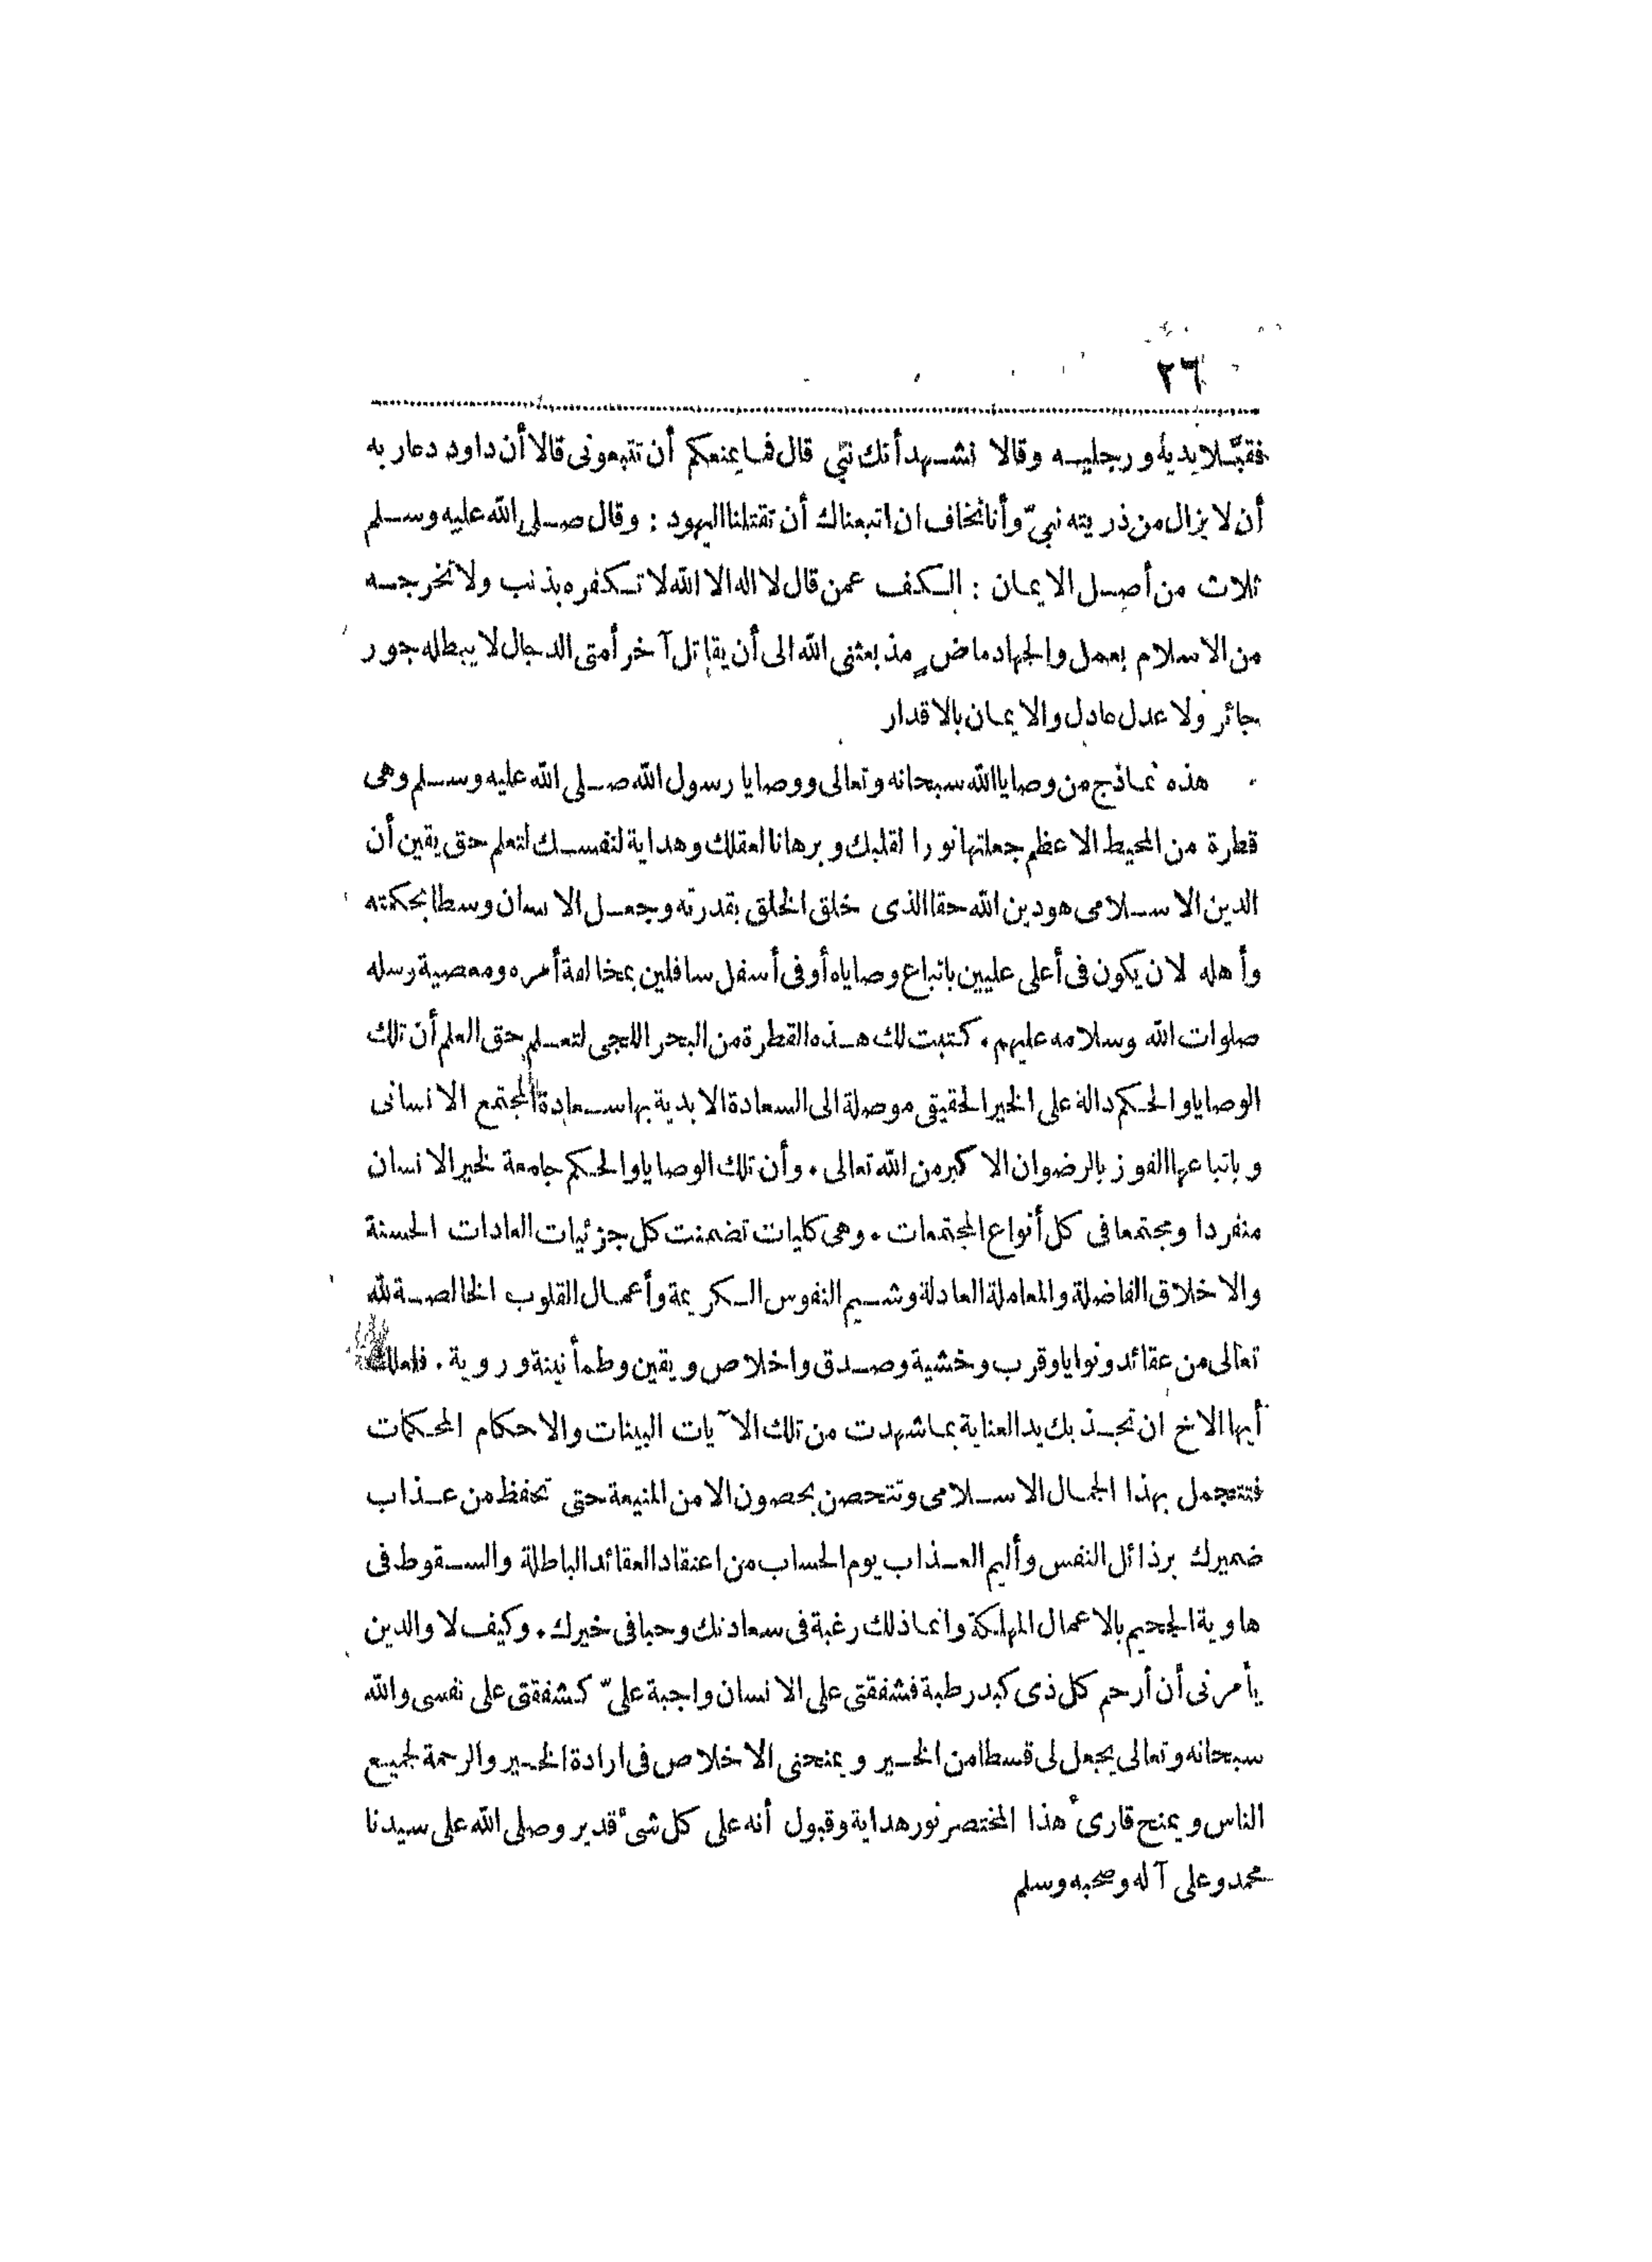 ٢٦
فقبَّلا يديه ورجليه وقالا نشهد أنك نبيّ قال فما يمنعكم أن تتبعونى قالا أن داود دعا ربه
أن لا يزال من ذريته نبيّ وأنا نخاف ان اتبعناك أن تقتلنا اليهود : وقال صلى الله عليه وسلم
ثلاث من أصل الايمان : الكف عمن قال لا اله الا الله لا تكفره بذنب ولا نخرجه
من الاسلام بعمل والجهاد ماضٍ مذ بعثنى الله الى أن يقاتل آخر أمتى الدجال لا يبطله جور
جائر ولا عدل عادل والايمان بالاقدار
هذه نماذج من وصايا الله سبحانه وتعالى ووصايا رسول الله صلى الله عليه وسلم وهى
قطرة من المحيط الاعظم جعلتها نورا لقلبك وبرهانا لعقلك وهداية لنفسك لتعلم حق يقين أن
الدين الاسلامى هو دين الله حقا الذى خلق الخلق بقدرته وجعل الانسان وسطا بحكمته
وأهله لان يكون فى أعلى عليين باتباع وصاياه أو فى أسفل سافلين بمخالفة أمره ومعصية رسله
صلوات الله وسلامه عليهم . كتبت لك هذه القطرة من البحر اللجى لتعلم حق العلم أن تلك
الوصايا والحكم دالة على الخير الحقيقى موصلة الى السعادة الابدية بها سعادة المجتمع الانسانى
وباتباعها الفوز بالرضوان الاكبر من الله تعالى . وأن تلك الوصايا والحكم جامعة لخير الانسان
منفردا ومجتمعا فى كل أنواع المجتمعات . وهى كليات تضمنت كل جزئيات العادات الحسنة
والاخلاق الفاضلة والمعاملة العادلة وشيم النفوس الكريمة وأعمال القلوب الخالصة لله
تعالى من عقائد ونوايا وقرب وخشية وصدق واخلاص ويقين وطمأنينة وروية . فلعلك
أيها الاخ ان تجذبك يد العناية بما شهدت من تلك الآيات البينات والاحكام المحكمات
فتتجمل بهذا الجمال الاسلامى وتتحصن بحصون الامن المنيعة حتى تحفظ من عذاب
ضميرك برذائل النفس وأليم العذاب يوم الحساب من اعتقاد العقائد الباطلة والسقوط فى
هاوية الجحيم بالاعمال المهلكة وانما ذلك رغبة فى سعادتك وحبا فى خيرك . وكيف لا والدين
يأمرنى أن أرحم كل ذى كبد رطبة فشفقتى على الانسان واجبة علىّ كشفقتى على نفسى والله
سبحانه وتعالى يجعل لى قسطا من الخير ويمنحنى الاخلاص فى ارادة الخير والرحمة لجميع
الناس ويمنح قارئ هذا المختصر نور هداية وقبول أنه على كل شئ قدير وصلى الله على سيدنا
محمد وعلى آله وصحبه وسلم